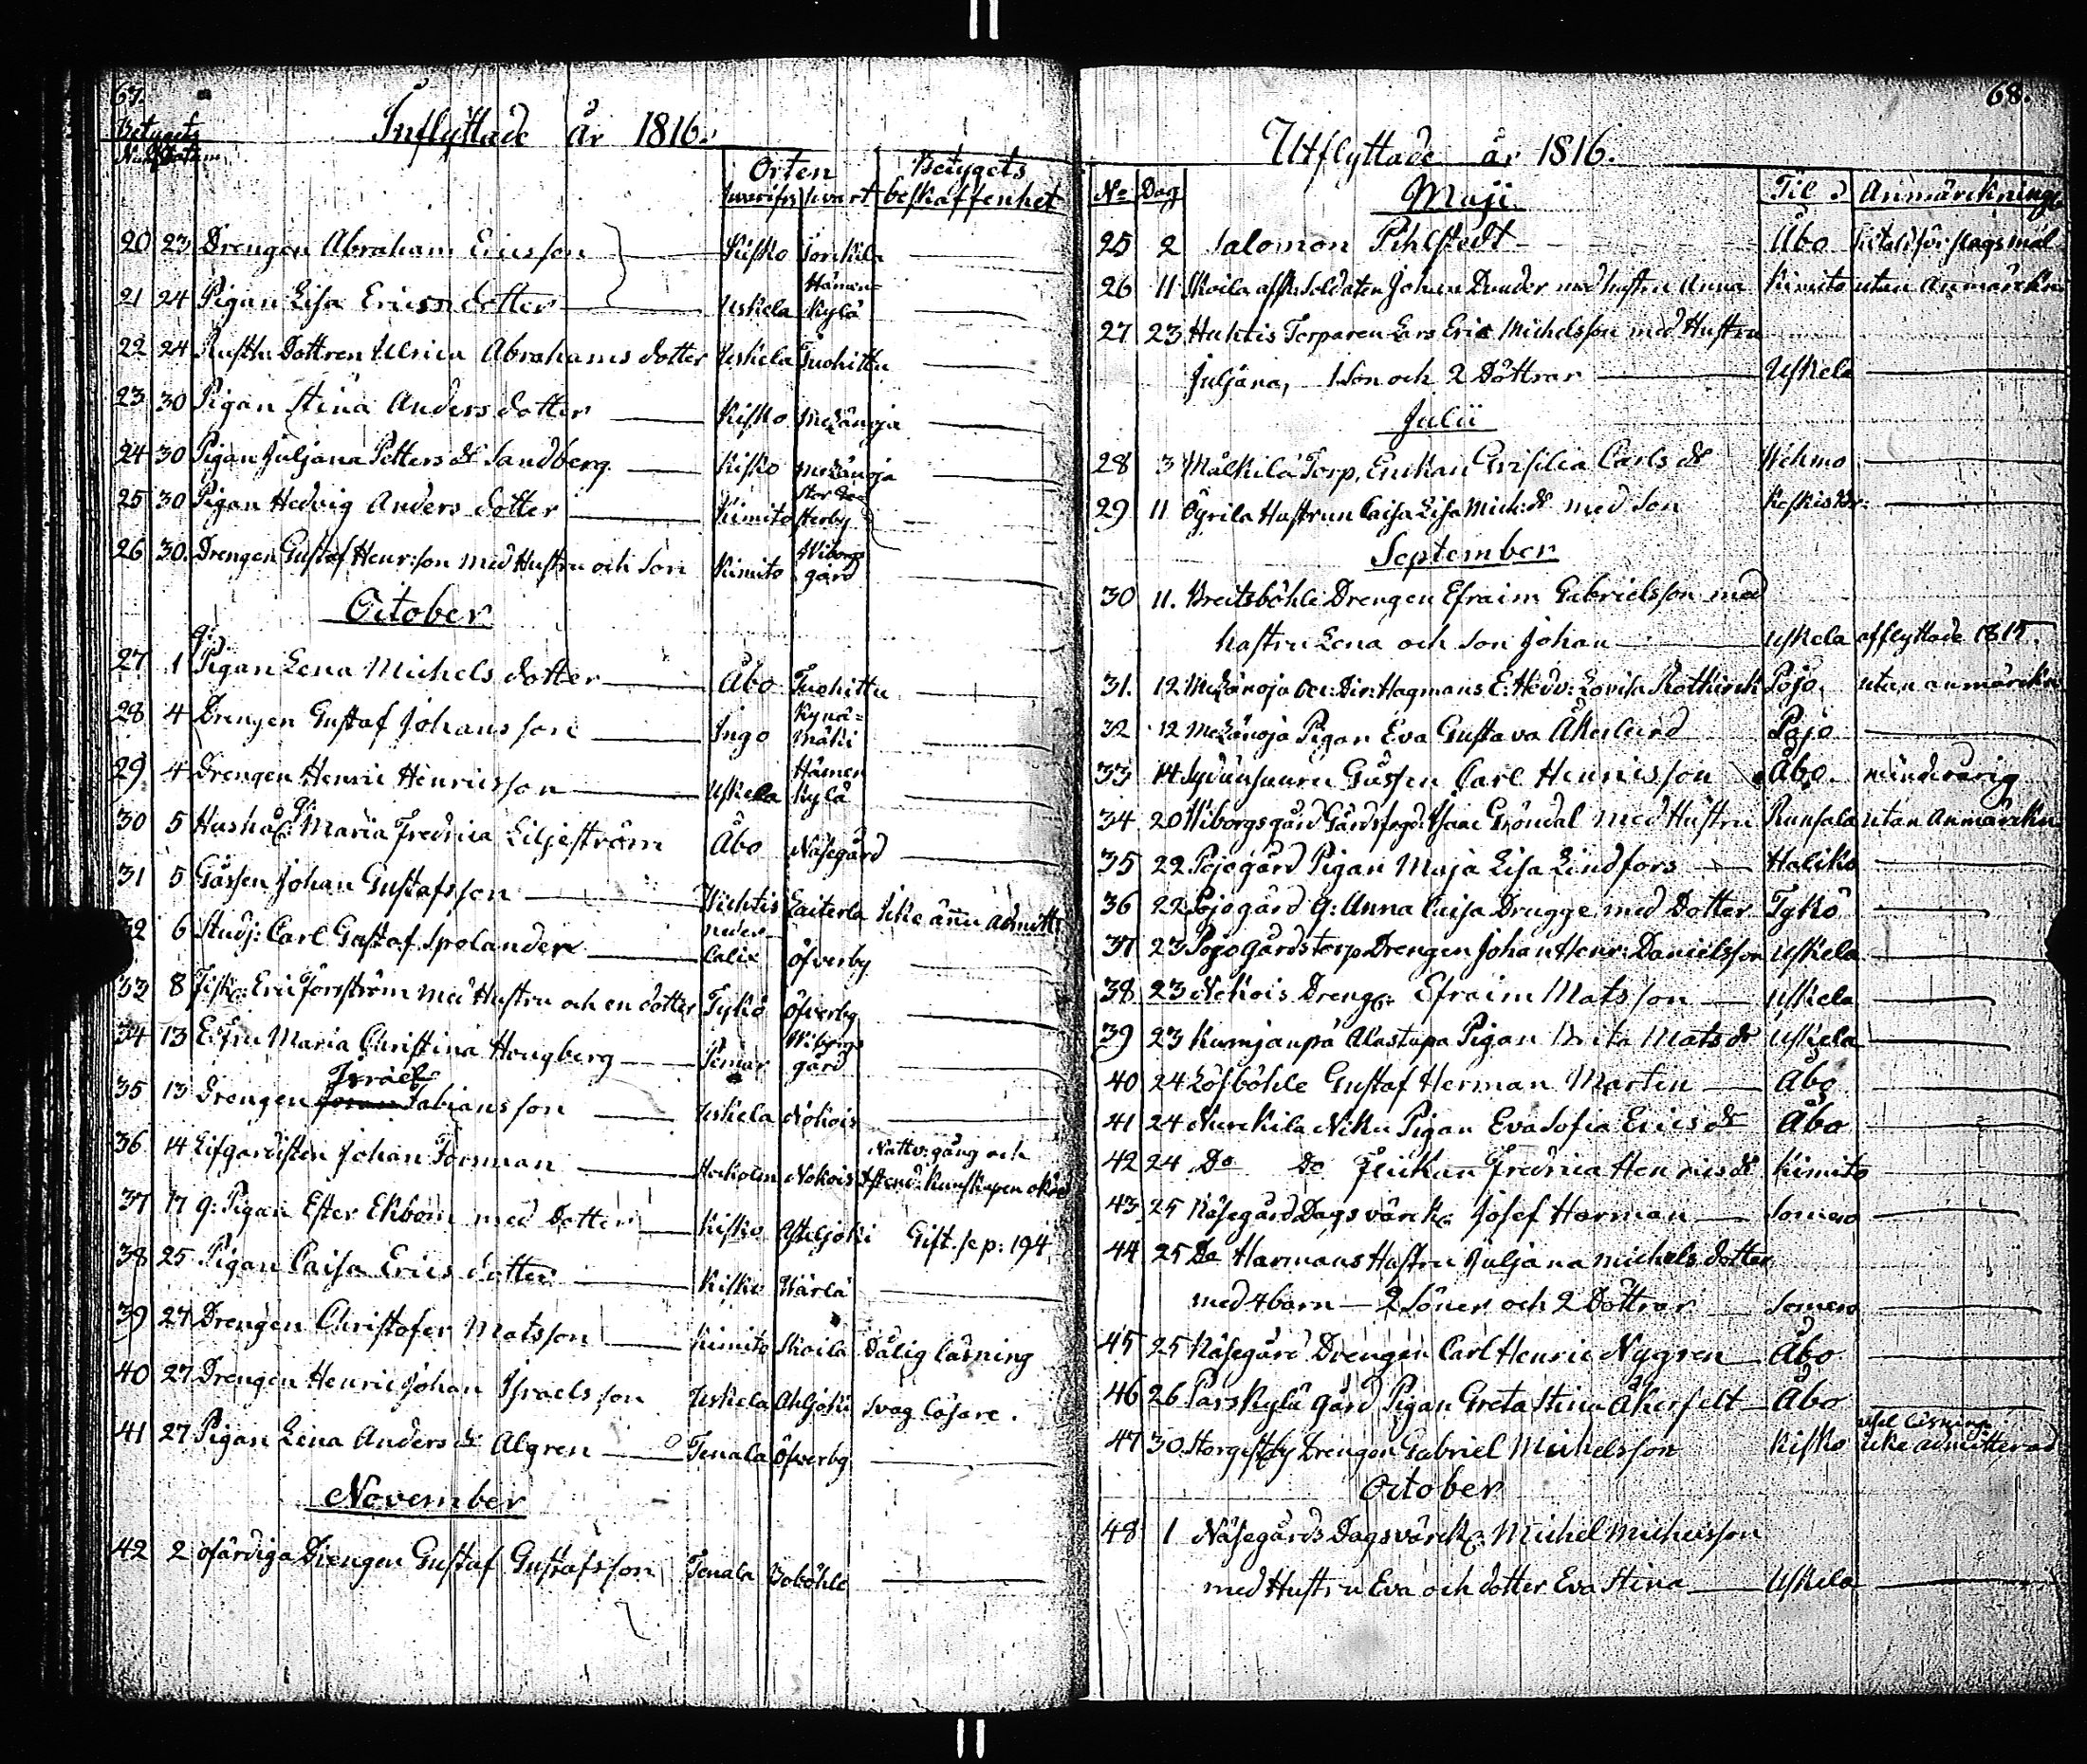 67.
Inflyttade år 1816.
Betygets
Orten
Betygets
hvarifr. hvart beskaffenhet
20 23 Drengen Abraham Ericsson Kisko Torckila
21 24 Pigan Lisa Ericsdotter Uskela Hämenkylä
22 24 Rusth. Dottren Ulrica Abrahamsdotter Uskela Tuohittu
23 30 Pigan Stina Andersdotter Kisko Metzänoja
24 30 Pigan Juljana Petters dr Sandberg Kisko Metzänoja
25 30 Pigan Hedvig Andersdotter Kimito
26 30. Drengen Gustaf Henr:son med Hustru och Son Kimito Wiborgsgård
October
27 1 q: Pigan Lena Michelsdotter Åbo Tuohittu
28 4 Drengen Gustaf Johansson Ingo Kynämäki
29 4 Drengen Henric Henricsson Uskela Hämenkylä
30 5 Hushåll: Maria Fredrica Liljeström Åbo Näsegård
31 5 Gåssen Johan Gustafsson Wichtis Laiterla icke ännu admitt:
32 6 Studj: Carl Gustaf Spolander neder Calix Öfverby
33 8 Eric Forsström med Hustru och en dotter Tykö Öfverby
34 13 Maria Christina Hougberg Pemar Wiborgsgård
35 13 Drengen Israel Fabiansson Uskela Nokois
36 14 Lifgardisten Johan Forsman Nokois Nattv:gång och
37 17 q: Pigan Ester Ekbom med Dotter Kisko Asteljoki Gift. se p: 194
38 25 Pigan Caisa Ericsdotter Kisko Kärlä
39 27 Drengen Christofer Matsson Kimito Skoila Dålig läsning
40 27 Drengen Henric Johan Israelsson Uskela Ahljoki Svag läsare.
41 27 Pigan Lena Anders dr Algren Tenala Öfverby
November
42 2 ofärdiga Drengen Gustaf Gustafsson Tenala Boböhle
68.
Utflyttade år 1816.
No Dag Maji Til Anmärckninga
25 2 Salomon Pihlstedt Åbo
26 11 Skoila afsk. Soldaten Johan Dunder med hustru Anna Kimito utan Anmärckn
27 23 Huhtis Torparen Lars Eric Michelsson med Hustru
Juljana, 1 Son och 2 Döttrar Uskela
Julii
28 3 Målkila Torp. Enckan Grisilia Carls dr Wehmo
29 11 Öyrila Hustrun Caisa Lisa Mich: dr med Son Keskisk:
September
30 11. Breitsböhle Drengen Efraim Gabrielsson med
hustru Lena och Son Johan Uskela afflyttade 1815.
31. 12 Metzänoja Hagmans E: Hedv: Lovisa Rothkirck Pojo utan anmärckn
32 12 Metzänoja Pigan Eva Gustava Åkerlund Pojo
33 14 Gåssen Carl Henricsson Åbo minderårig
34 20 Wiborgsgård Gårdsfogd. Isaac Gröndal med Hustru Runsala utan Anmärckn
35 22 Pojogård Pigan Maja Lisa Lindfors Haliko
36 22 Pojogård q: Anna Caisa Drugge med Dotter Tykö
37 23 Pojogårdstorp Drengen Johan Henr: Danielsson Uskela
38 23 Nokois Dreng: Efraim Matsson Uskela
39 23 Kumjanpä Alastupa Pigan Brita Mats dr Uskela
40 24 Löfböhle Gustaf Herman Martin Åbo
41 24 Nurckila Niku Pigan Eva Sofia Erics dr Åbo
42 24 Do Do Flickan Fredrica Henrics dr Kimito
43 25 Näsegård Dagsvärck: Josef Harman Somero
44 25 Do Harmans Hustru Juljana Michelsdotter
med 4 barn - 2 Söner och 2 Döttrar Somero
45 25 Näsegård Drengen Carl Henric Nygren Åbo
46 26 Pärskylä gård Pigan Greta Stina Åkerfelt Åbo
47 30 Drengen Gabriel Michelsson Kisko usel läsning icke admitterad
October
48 1 Näsegårds Dagsvärck: Michel Michelsson
med Hustru Eva och dotter Eva Stina Uskela